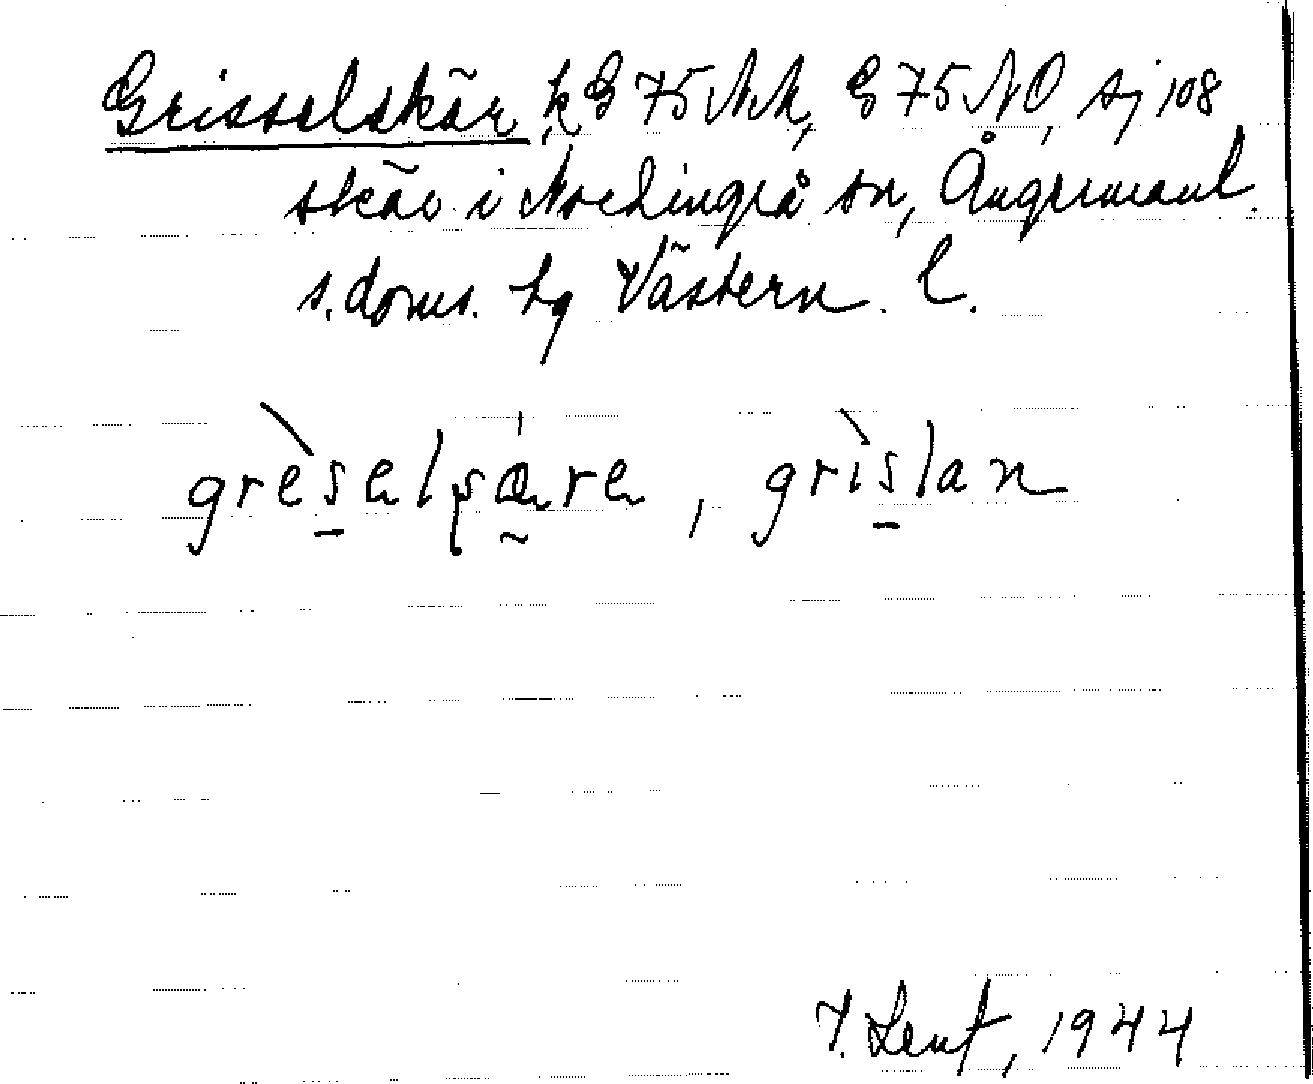 Grisselskär, k G 75 NV, G 75 NO, sj 108
skär i Nordingrå sn, Ångermanl.
s. doms. tg Västern. l.
grèselʂæ̀re, grìslan
Lent, 1944